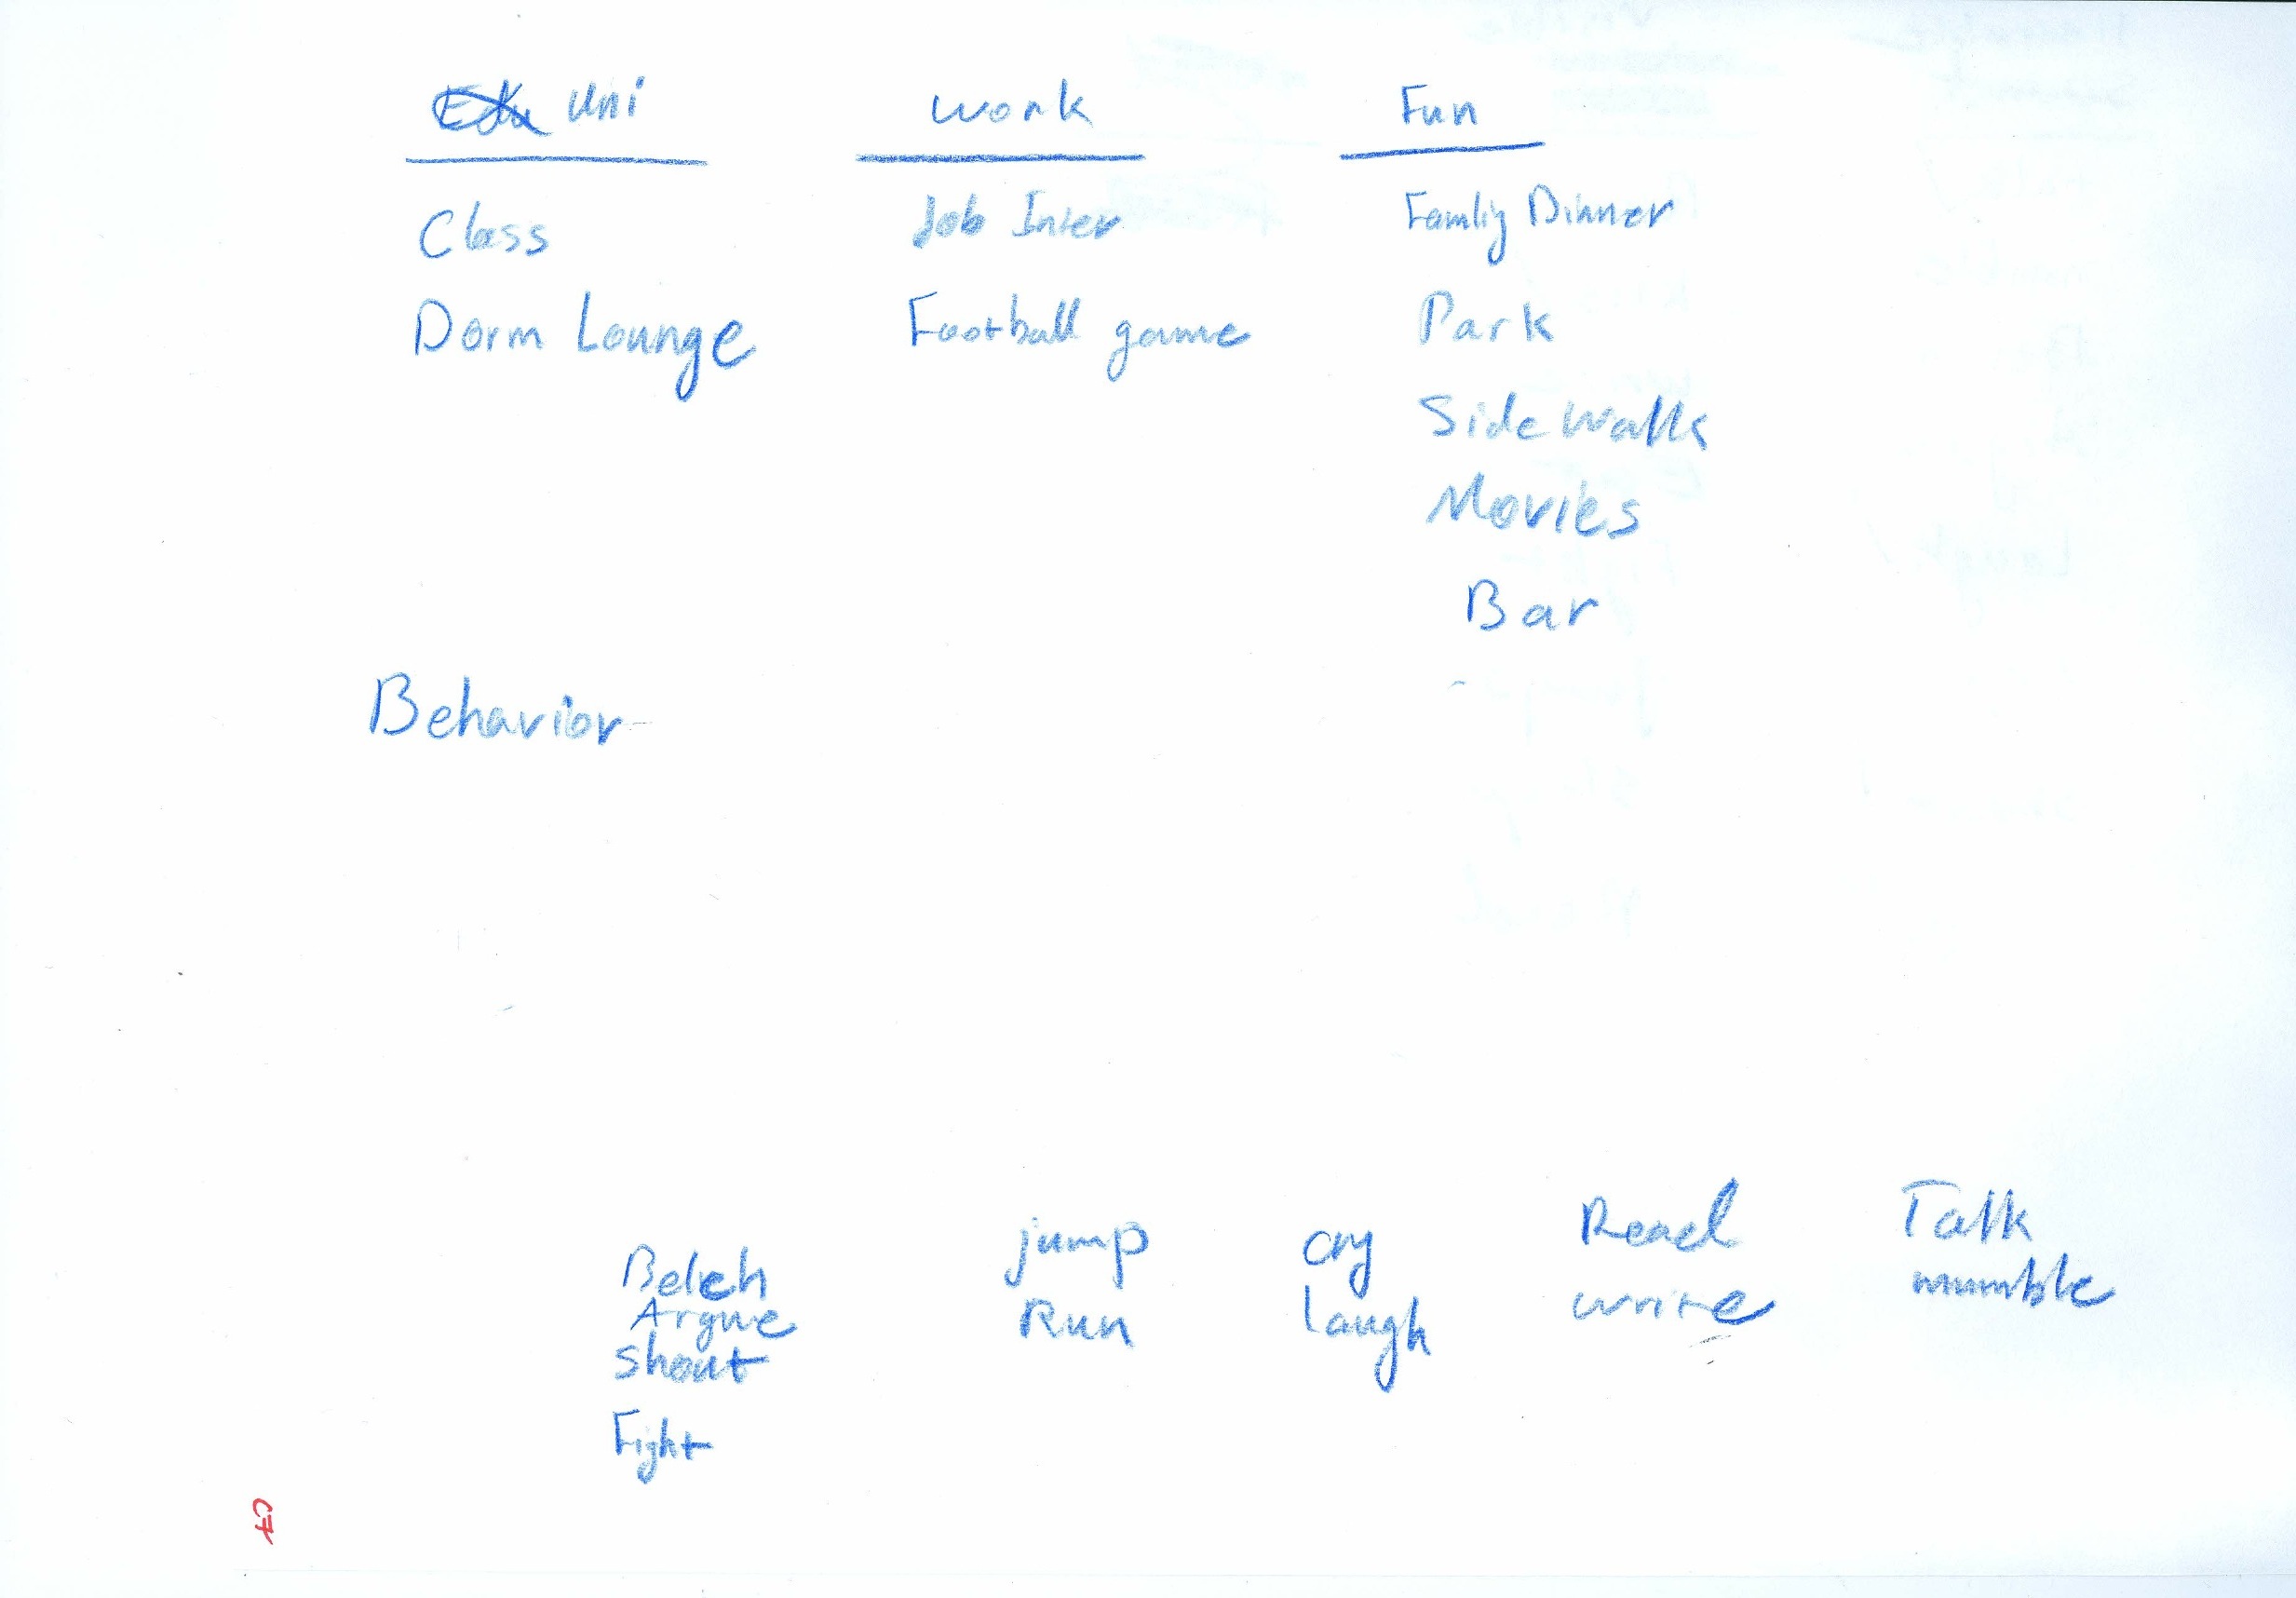 Edu Uni
Class
Dorm Lounge
work
Job Inter
Football game
Fun
Famliy Dinner
Park
Side walk
Movies
Bar
Behavior
Belch
Argue
Shout
Fight
jump
Run
cry
laugh
Read
write
Talk
mumble
C7